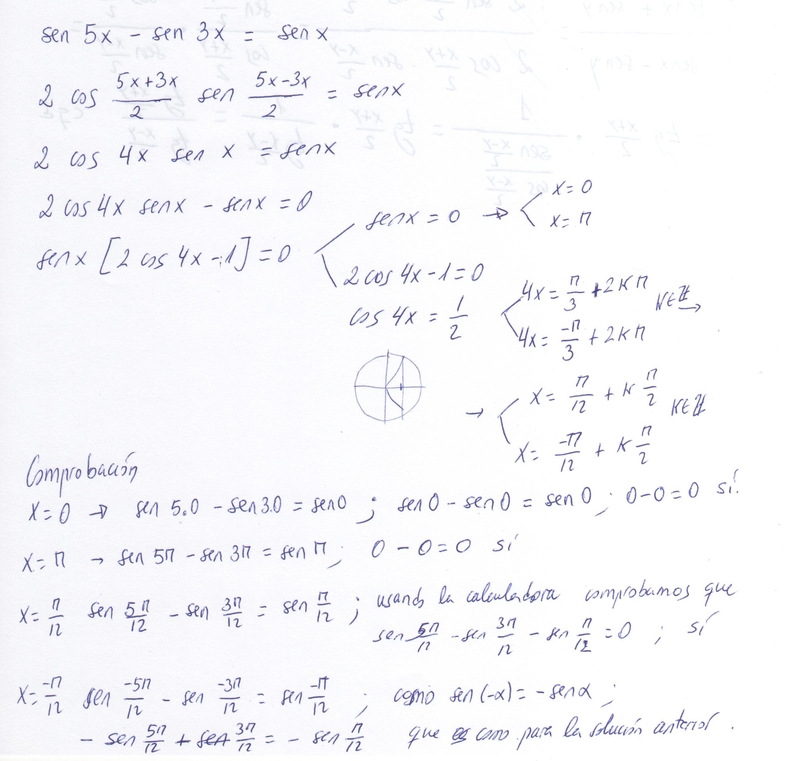 sen 5x - sen 3x = sen x
2 cos (5x+3x)/2 sen (5x-3x)/2 = senx
2 cos 4x sen x = senx
2 cos 4x senx - senx = 0
senx [2 cos 4x - 1] = 0
senx = 0 → x = 0
x = π
2 cos 4x - 1 = 0
cos 4x = 1/2
4x = π/3 + 2Kπ K∈ℤ →
4x = -π/3 + 2Kπ
→ x = π/12 + K π/2 K∈ℤ
x = -π/12 + K π/2
Comprobación
x = 0 → sen 5.0 - sen 3.0 = sen 0 ; sen 0 - sen 0 = sen 0 ; 0 - 0 = 0 sí.
x = π → sen 5π - sen 3π = sen π ; 0 - 0 = 0 sí
x = π/12 sen 5π/12 - sen 3π/12 = sen π/12 ; usando la calculadora comprobamos que
sen 5π/12 - sen 3π/12 - sen π/12 = 0 ; sí
x = -π/12 sen -5π/12 - sen -3π/12 = sen -π/12 ; como sen(-α) = -sen α ;
- sen 5π/12 + sen 3π/12 = - sen π/12 que es como para la solución anterior.